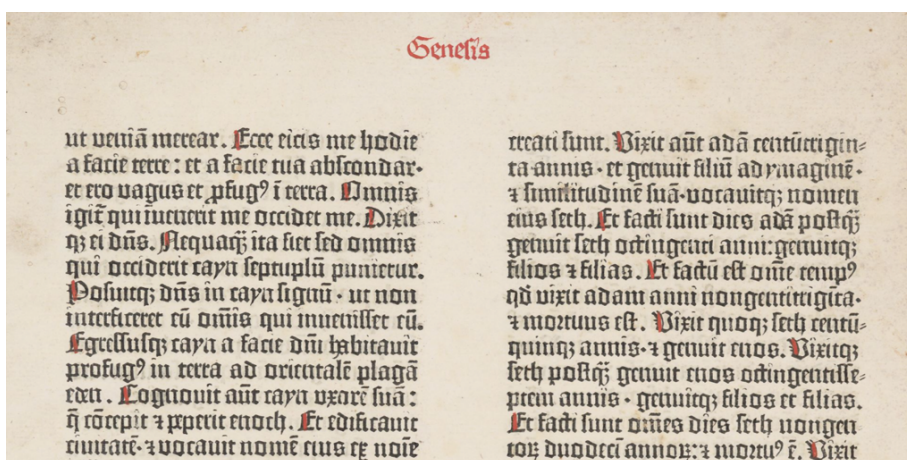 Genesis
ut veniā merear. Ecce eicis me hodie
a facie terre: et a facie tua abscondar·
et ero vagus et ꝓfugꝰ ī terra. Omnis
igit᷑ qui invenerit me occidet me. Dixit
qꝫ ei dñs. Nequaqᷓꝫ ita fiet sed omnis
qui occiderit cayn septuplū punietur.
Posuitqꝫ dñs in cayn signū· ut non
interficeret eū om̄is qui invenisset eū.
Egressusqꝫ cayn a facie dn̄i habitavit
profugꝰ in terra ad orientalē plagā
eden. Cognovit aūt cayn uxorē suā:
q̄ cōcepit ⁊ peperit enoch. Et edificavit
civitatē· ⁊ vocavit nomē eius ex noīe
creati sunt. Vixit aūt adā centūtrigin⸗
ta annis· et genuit filiū ad ymaginē·
⁊ similitudinē suā· vocavitqꝫ nomen
eius seth. Et facti sunt dies adā postqᷓꝫ
genuit seth octingenti anni: genuitqꝫ
filios ⁊ filias. Et factū est om̄e tempꝰ
qd̄ vixit adam anni nongentitrigīta·
⁊ mortuus est. Vixit quoqꝫ seth centū⸗
quinqꝫ annis· ⁊ genuit enos. Vixitqꝫ
seth postqᷓꝫ genuit enos octingentisse⸗
ptem annis· genuitqꝫ filios et filias.
Et facti sunt om̄es dies seth nongen
toꝝ duodecī annoꝝ: ⁊ mortuꝰ ē. Vixit